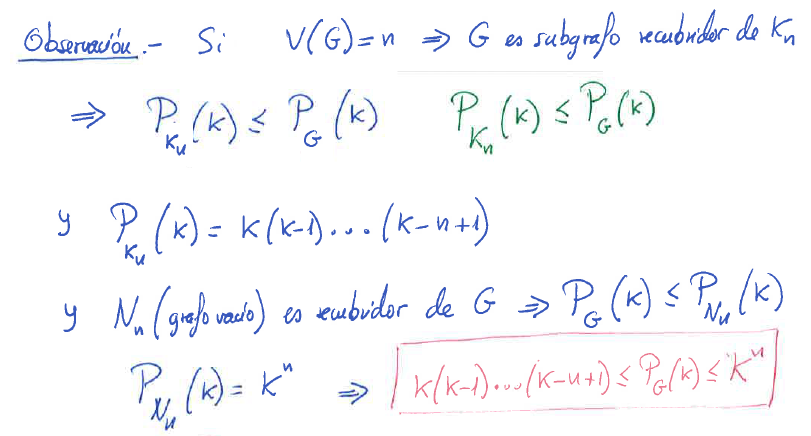 Observación.- Si V(G)=n ⇒ G es subgrafo recubridor de Kn
⇒ P_{K_n}(k) ≤ P_G(k) P_{K_n}(k) ≤ P_G(k)
y P_{K_n}(k) = k(k-1)...(k-n+1)
y N_n (grafo vacío) es recubridor de G ⇒ P_G(k) ≤ P_{N_n}(k)
P_{N_n}(k) = k^n ⇒ k(k-1)...(k-n+1) ≤ P_G(k) ≤ k^n